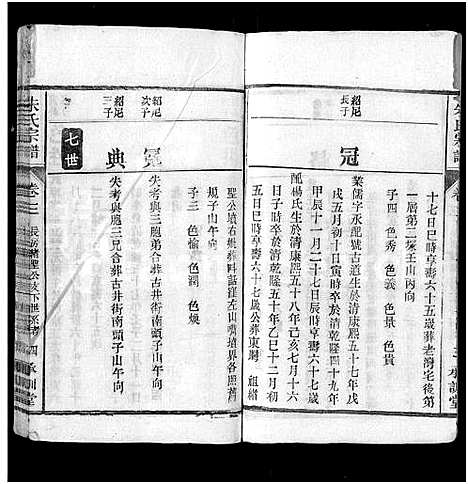 十七日巳時亨壽六十五歲葬老灣宅後第
一層第二塚壬山丙向
子四 色秀 色義 色景 色貴
紹尼
長子
冠
業儒字永配號古道生於清康熙五十七年戊
戌五月初十日寅時卒於清乾隆四十九年
甲辰十一月二十七日辰時亨壽六十七歲
配楊氏生於清康熙五十八年己亥七月十六
日子時卒於清乾隆五十年乙巳十二月初
五日巳時亨壽六十七歲公葬東
祖緒
聖公墳右
山齊墳界各照舊
規子山午向
子三 色愉 色潤 色煥
紹尼
次子
冕
失考與三胞弟合葬古井街南頭子山午向
紹尼
三子
典
失考與胞三兄合葬古井街南頭子山午向
七世
朱氏宗譜
卷
長房
聖公支下世系
四
承訓堂